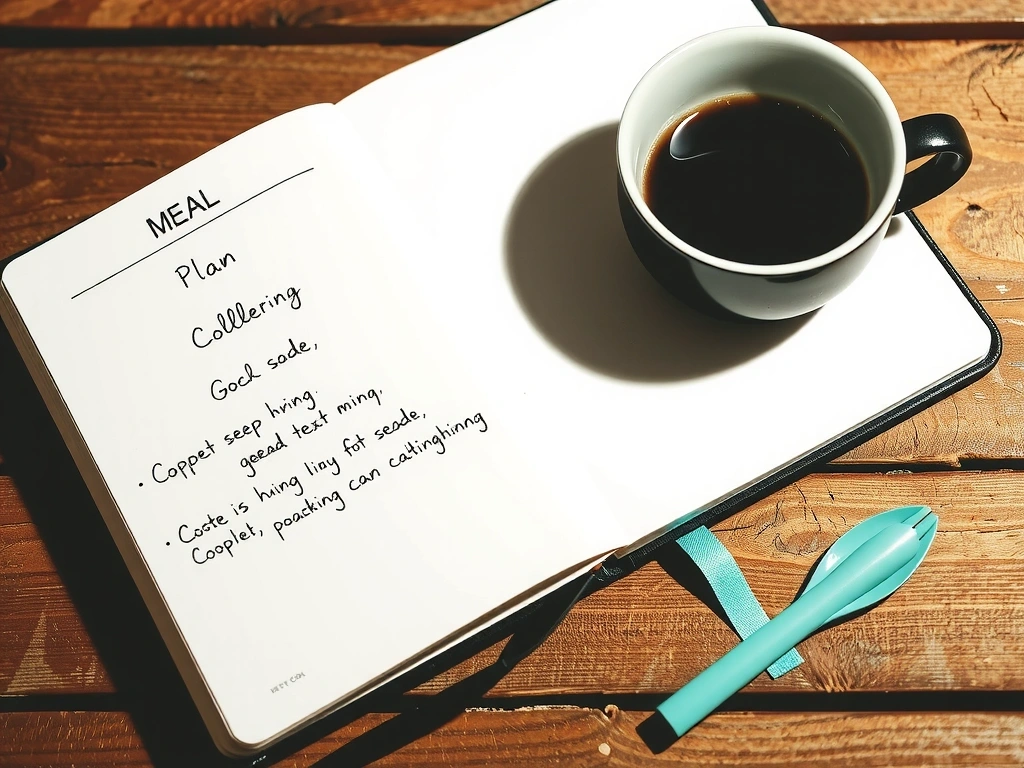 MEAL
Plan
Colllering
Gock sade,
• Coppet seep hring.
geead text ming,
• Coote is huing liny fot seade,
Cooplet, poacking can catlinghinng